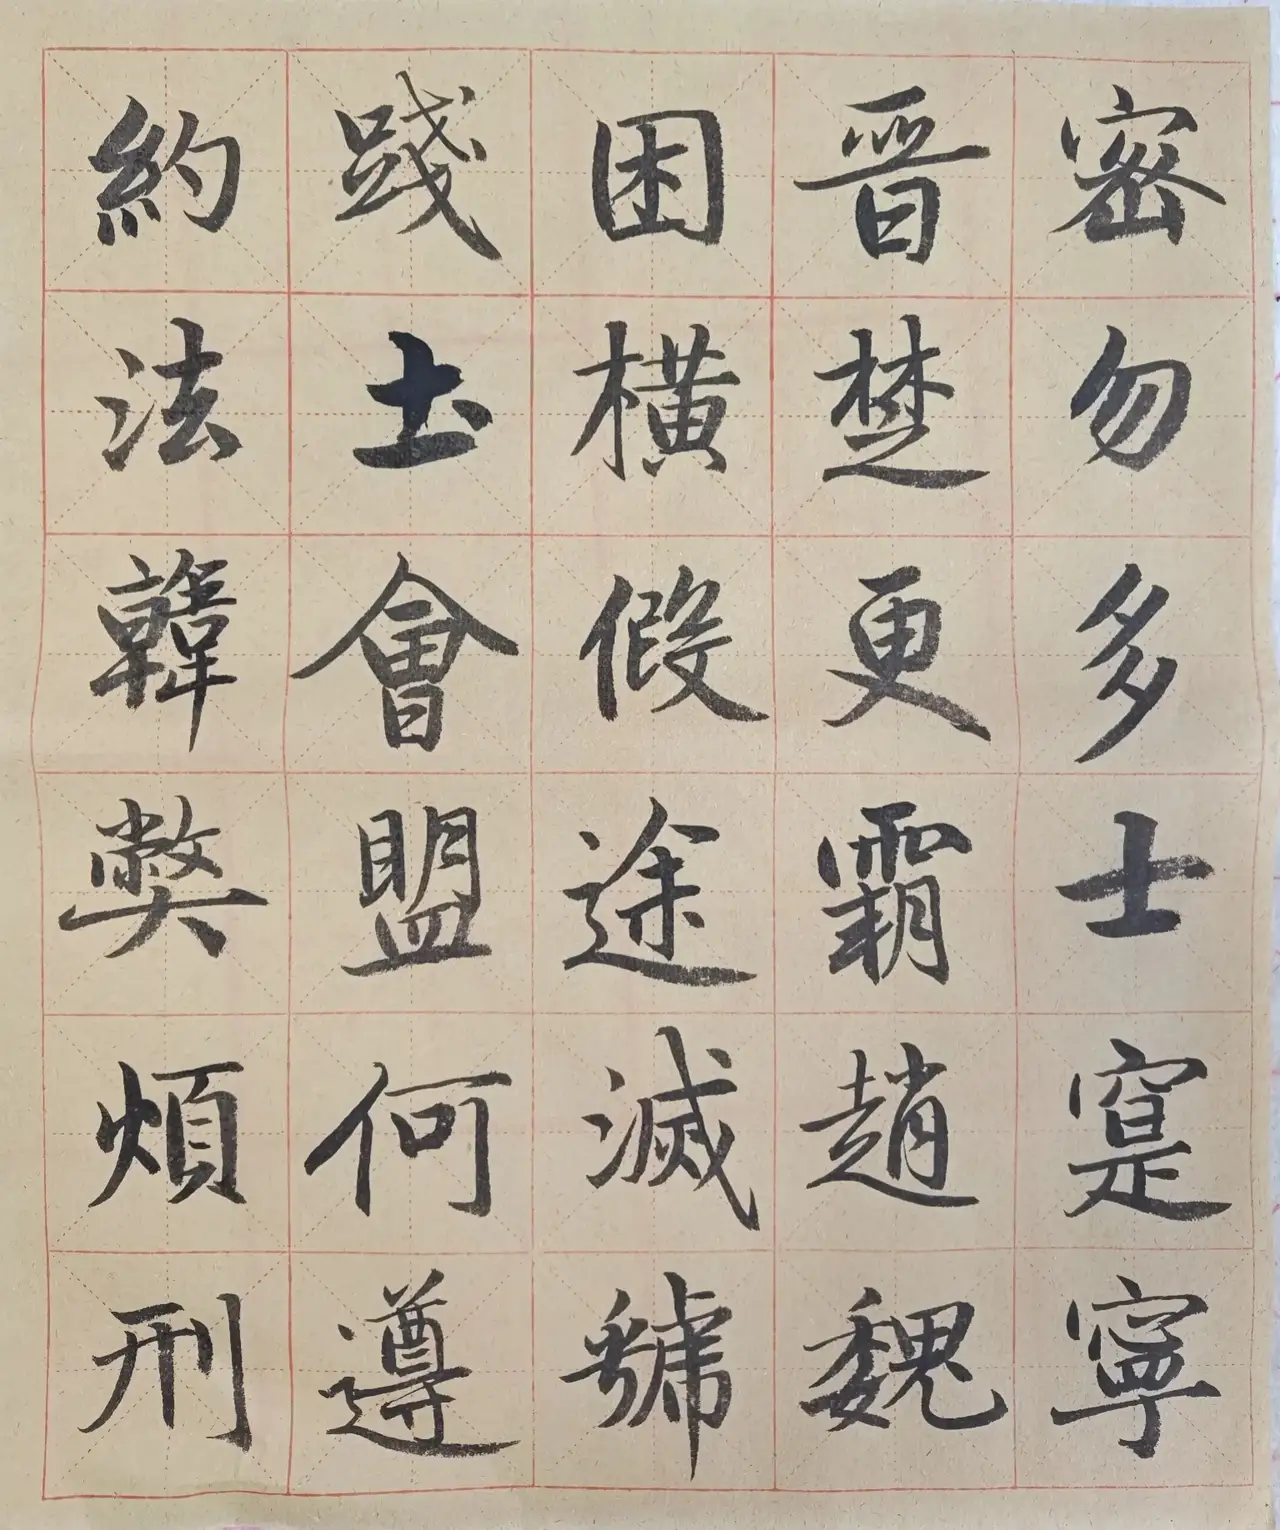 密勿多士寔寧
晉楚更霸趙魏
困橫假途滅虢
踐土會盟何遵
約法韓弊煩刑